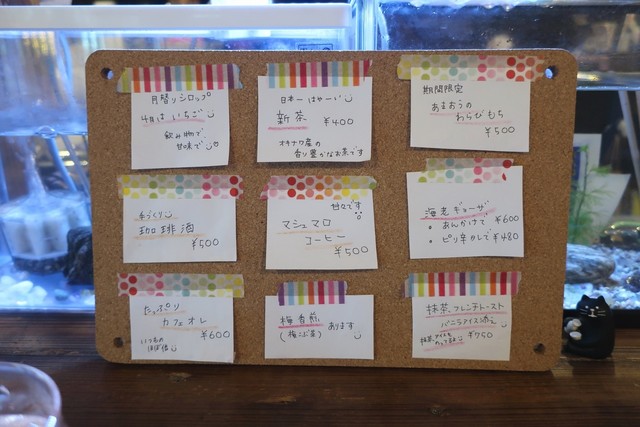 月替りシロップ
4月は いちご
飲み物で、
甘味で
日本一はやーい
新茶 ¥400
オキナワ産の
香り豊かなお茶です
期間限定
あまおうの
わらびもち
¥500
手づくり
珈琲酒
¥500
甘々です
マシュマロ
コーヒー
¥500
海老ギョーザ
・あんかけで ¥600
・ピリ辛タレで ¥480
たっぷり
カフェオレ
¥600
いつもの
ほぼ倍
梅香煎 あります
(梅こぶ茶)
抹茶フレンチトースト
バニラアイス添え
抹茶アイスも
のってます ¥750